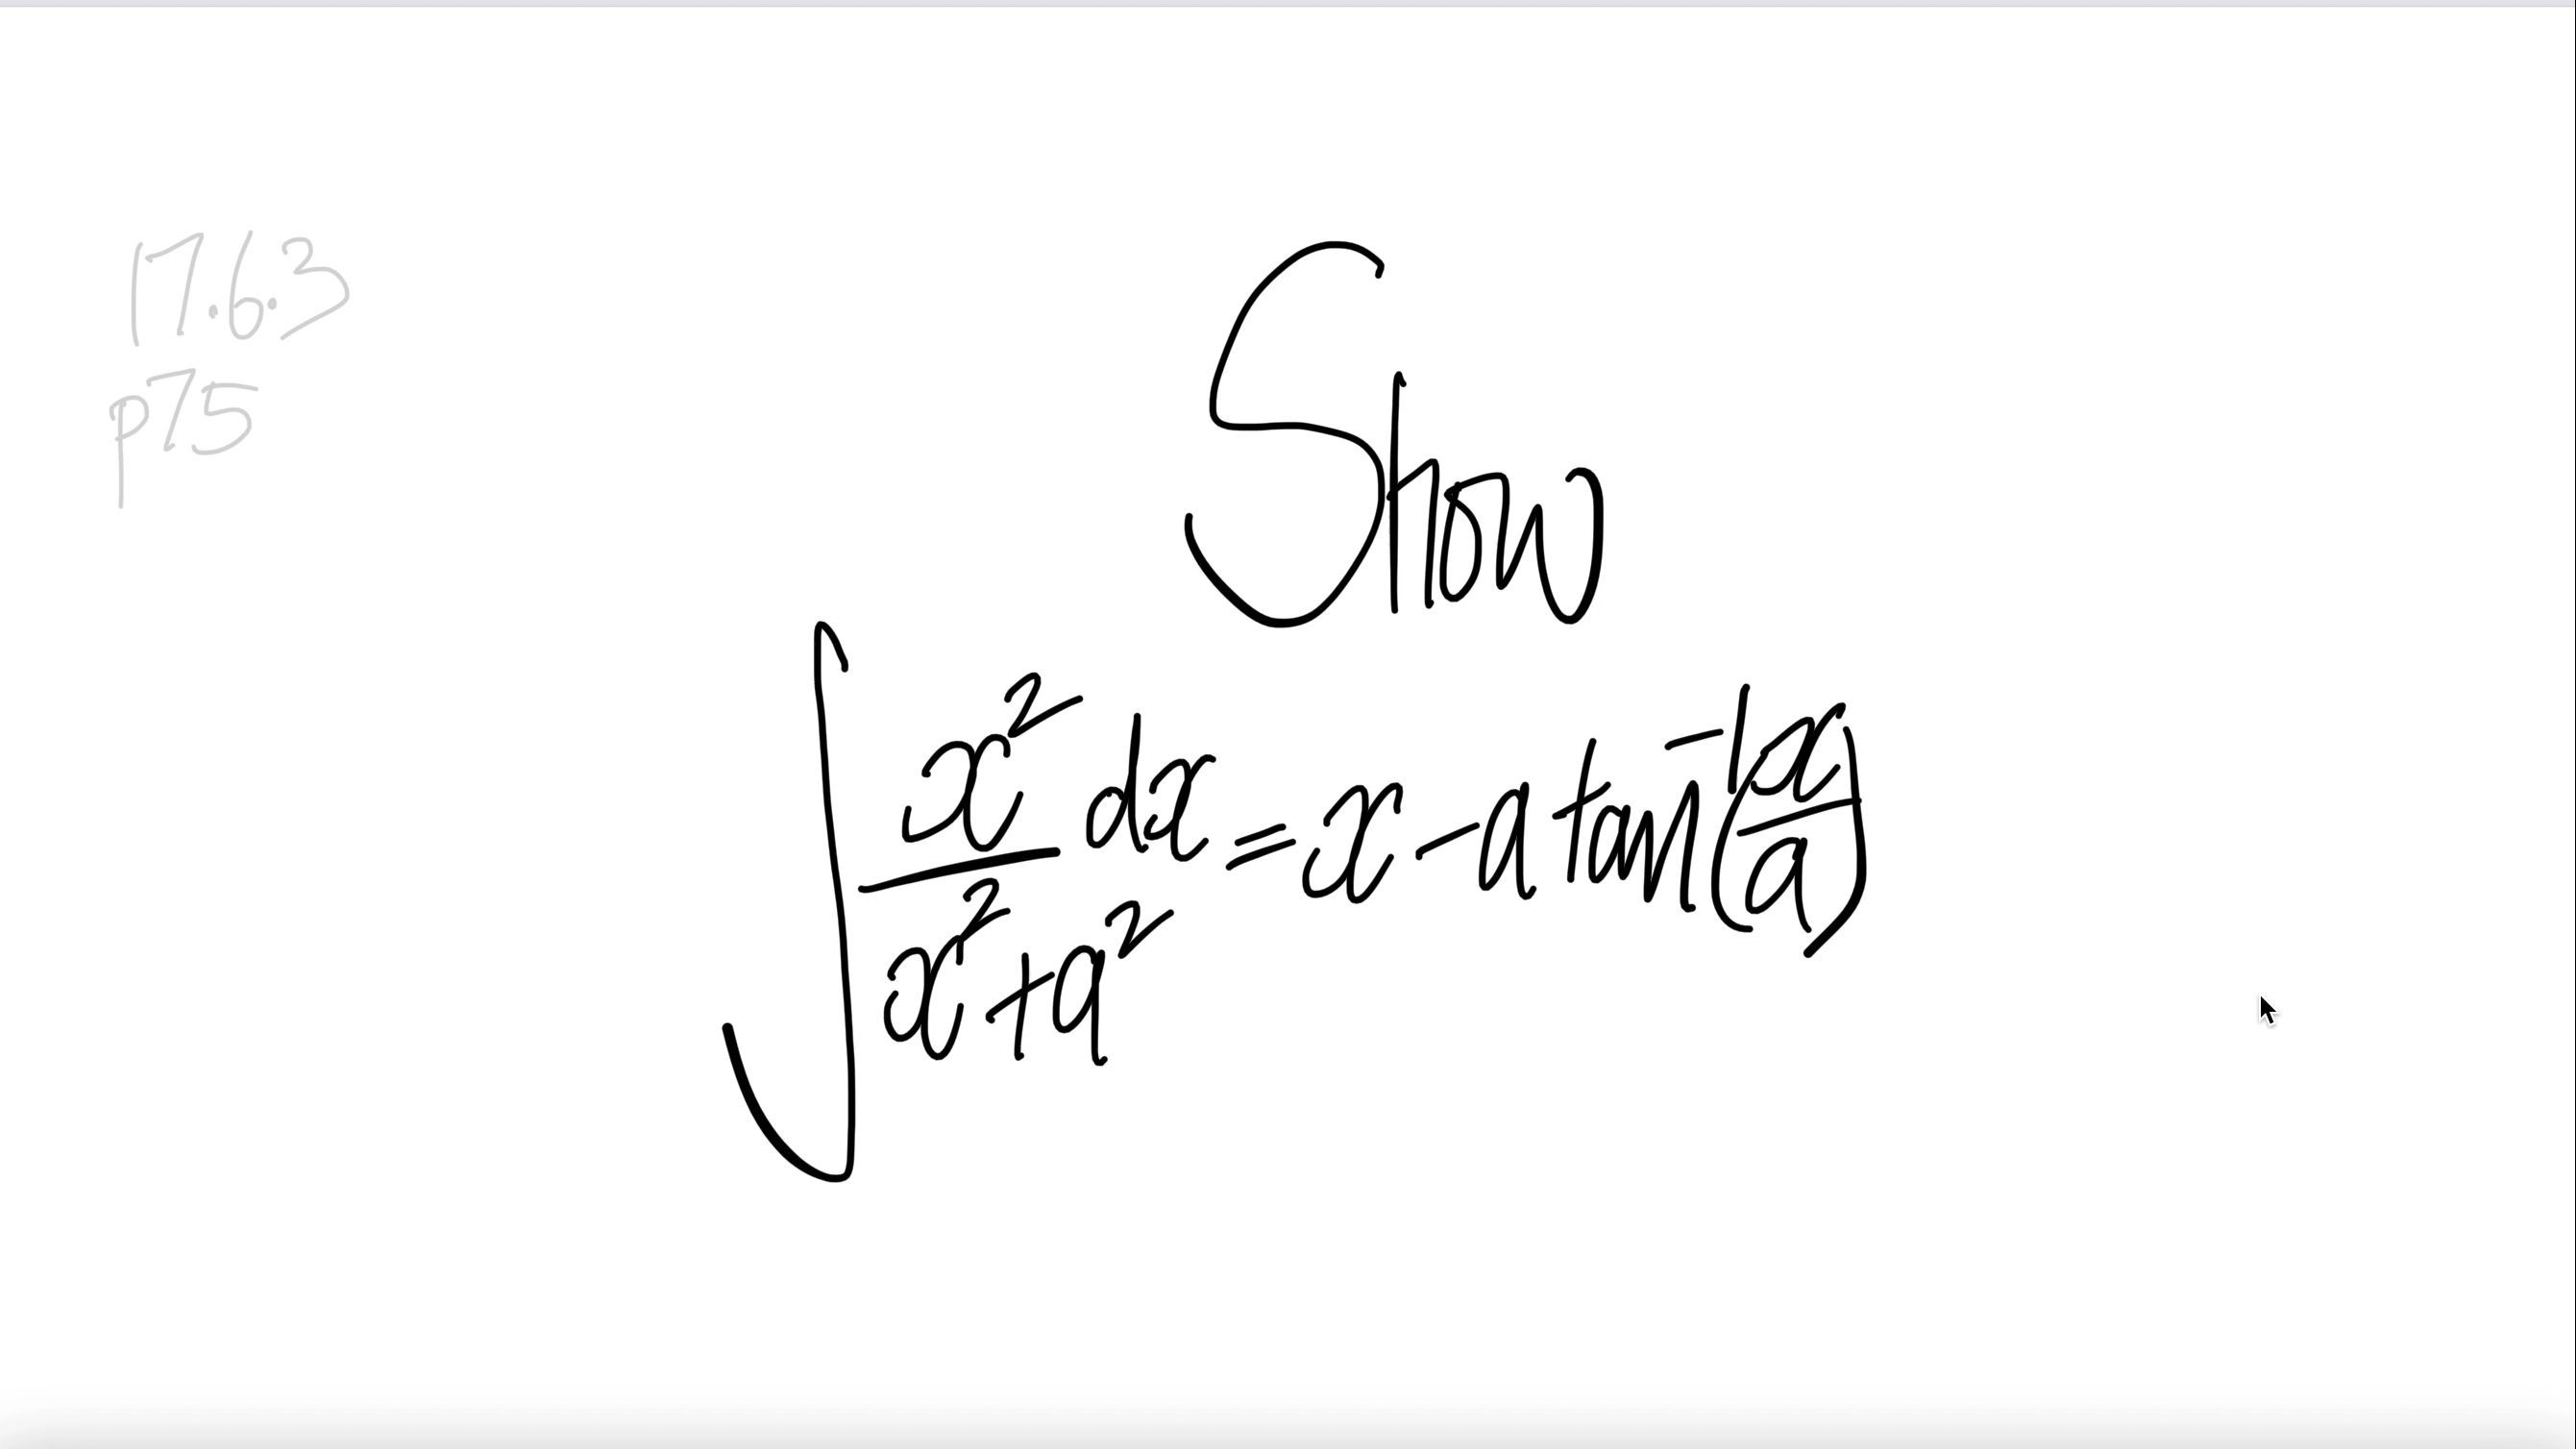 17.6.3
p75
Show
∫ x²/(x²+a²) dx = x - a tan⁻¹(x/a)